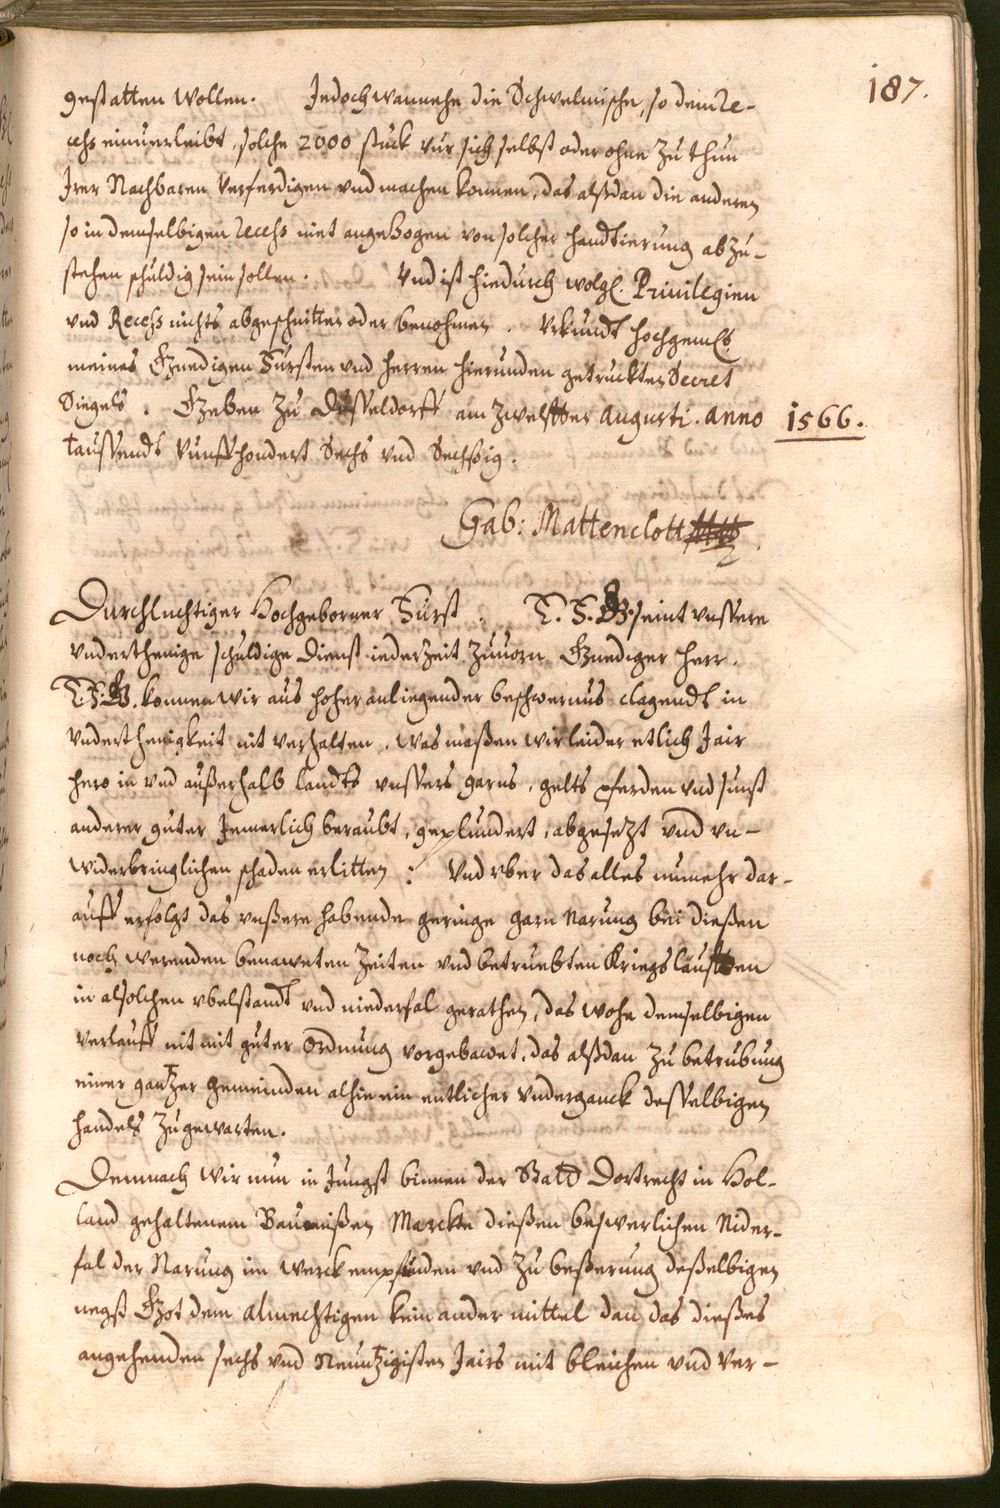 187.
gestatten wollen. Jedoch wannehe die Schwelmische, so dem Re-
cess einuerleibt, solche 2000 stuck vur sich selbst oder ohne zu thun
Irer Nachbaren verferdigen vnd machen konnen, das alßdan die anderen
so in demselbigen Recess niet angezogen von solcher handtierung abzu-
stehen schuldig sein sollen. Vnd ist hiedurch wolgl. Priuilegien
vnd Recess nichts abgeschnitten oder benohmen. Urkundt hochgemelts
meines Gnedigen Fursten vnd herren hierunden getruckten Secret
Siegels. Geben zu Dusseldorff am zwelfften Augusti. anno 1566.
taussendt vunffhondert Sechs vnd Sechßig.
Gab: Mattenclott
Durchluchtiger Hochgeborner Furst. E. F. G. seint vnssere
vnderthenige schuldige Dienst iederzeit zuuorn Gnediger Herr.
E. F. G. konnen wir aus hoher anliegender beschwernus clagendt in
vnderthenigkeit nit verhalten, was maßen wir leider etlich Jair
hero in vnd außerhalb landts vnssers garns, gelts pferden vnd sunst
anderer guter Jemerlich beraubt, geplundert, abgesetzt vnd vn-
widerbringlichen schaden erlitten: Vnd vber das alles nunmehr dar-
auff erfolgt das vnßere habende geringe garn Narung bei dießen
noch werenden benaweten zeiten vnd betruebten Kriegsläufften
in alsolchen vbelstandt vnd niederfal gerathen, das wohe demselbigen
verlauff nit mit guter Ordnung vorgebawet, das alßdan zu betrubung
einer gantzer gemeinden alhie ein entlicher vnderganck desselbigen
handels zugewarten.
Demnach wir nun in Jungst binnen der Statt Dortrecht in Hol-
land gehaltenem Baumißen Marckte dießen beswerlichen Nider-
fal der Narung im werck empfunden vnd zu beßerung deßelbigen
negst Got dem almechtigen kein ander mittel dan das dießes
angehenden sechs vnd Neuntzigisten Jairs mit bleichen vnd ver-